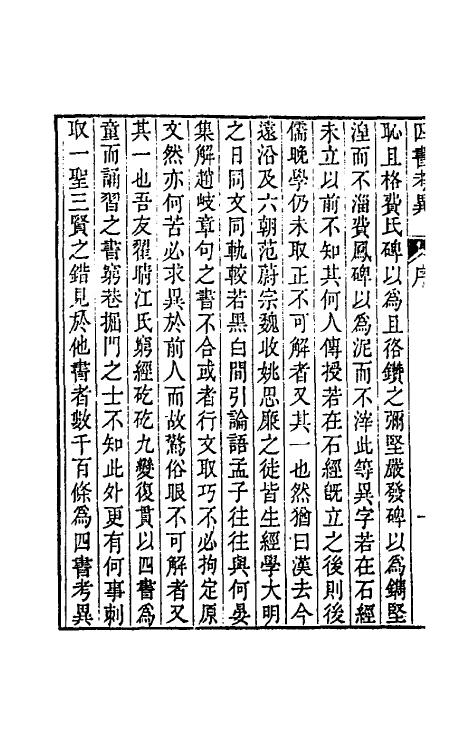 四書考異 序 一
恥且格費氏碑以為且佫鑽之彌堅嚴發碑以為鐫堅
湼而不淄費鳳碑以為泥而不滓此等異字若在石經
未立以前不知其何人傳授若在石經既立之後則後
儒晚學仍未取正不可解者又其一也然猶曰漢去今
遠沿及六朝范蔚宗魏收姚思廉之徒皆生經學大明
之日同文同軌較若黑白間引論語孟子往往與何晏
集解趙岐章句之書不合或者行文取巧不必拘定原
文然亦何苦必求異於前人而故驚俗眼不可解者又
其一也吾友翟晴江氏窮經矻矻九變復貫以四書為
童而誦習之書窮巷掘門之士不知此外更有何事刺
取一聖三賢之錯見於他書者數千百條為四書考異